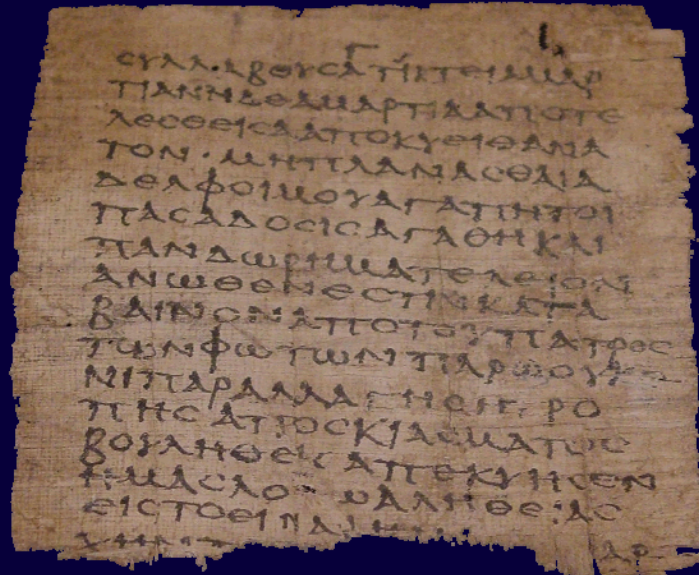 ϹΥΛΛ·ΑΒΟΥϹΑΤΙΚΤΕΙΑΜΑΡ
ΤΙΑΝΗΔΕΑΜΑΡΤΙΑΑΠΟΤΕ
ΛΕϹΘΕΙϹΑΑΠΟΚΥΕΙΘΑΝΑ
ΤΟΝ·ΜΗΠΛΑΝΑϹΘΑΙΑ
ΔΕΛΦΟΙΜΟΥΑΓΑΠΗΤΟΙ
ΠΑϹΑΔΟϹΙϹΑΓΑΘΗΚΑΙ
ΠΑΝΔΩΡΗΜΑΤΕΛΕΙΟΝ
ΑΝΩΘΕΝΕϹΤΙΝΚΑΤΑ
ΒΑΙΝΟΝΑΠΟΤΟΥΠΑΤΡΟϹ
ΤΩΝΦΩΤΩΝΠΑΡΩΟΥΚΕ
ΝΙΠΑΡΑΛΛΑΓΗΟΗΤΡΟ
ΠΗϹΑΠΟϹΚΙΑϹΜΑΤΟϹ
ΒΟΥΛΗΘΕΙϹΑΠΕΚΥΗϹΕΝ
ΗΜΑϹΛΟΓΩΑΛΗΘΕΙΑϹ
ΕΙϹΤΟΕΙΝΑΙ